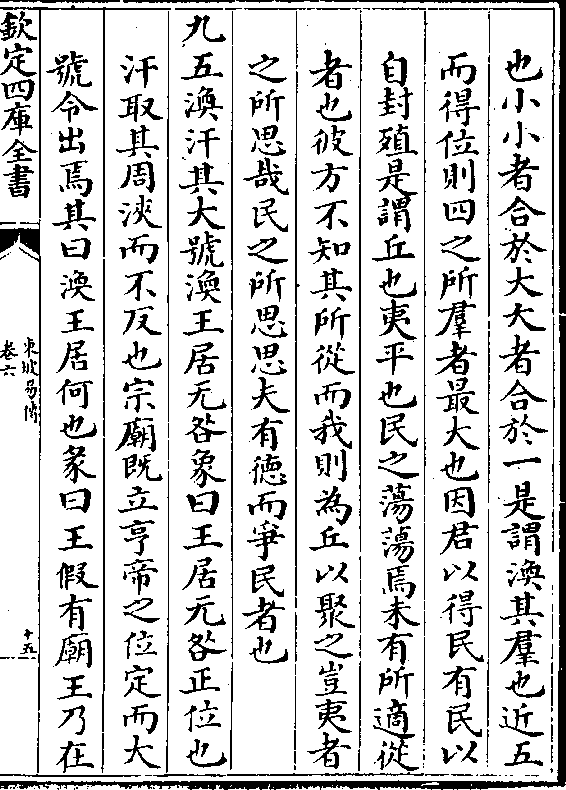 也小小者合於大大者合於一是謂渙其羣也近五
而得位則四之所羣者最大也因君以得民有民以
自封殖是謂丘也夷平也民之蕩蕩焉未有所適從
者也彼方不知其所從而我則為丘以聚之豈夷者
之所思哉民之所思思夫有德而爭民者也
九五渙汗其大號渙王居无咎象曰王居无咎正位也
汗取其周浹而不反也宗廟既立亨帝之位定而大
號令出焉其曰渙王居何也彖曰王假有廟王乃在
欽定四庫全書
東坡易傳
卷六
十五